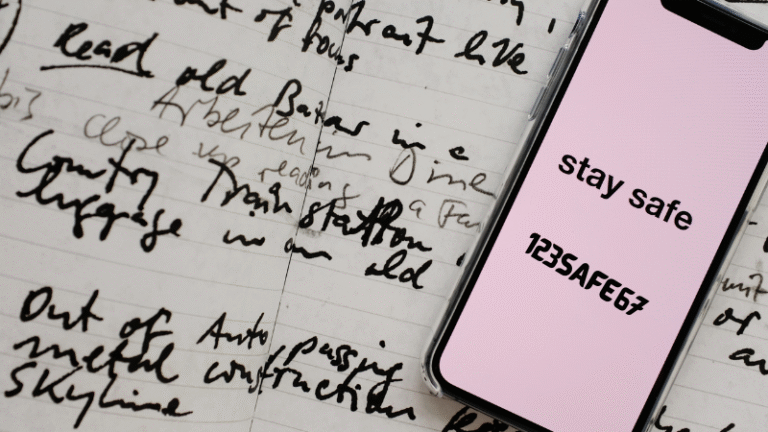 out of
portrait like
focus
Read old Bazar in a
bis Arbeiten im Dine
close up reading a
Country Train station
luggage in an old
Out of Auto, passing
metal construction
SKyline
stay safe
123SAFE67
or